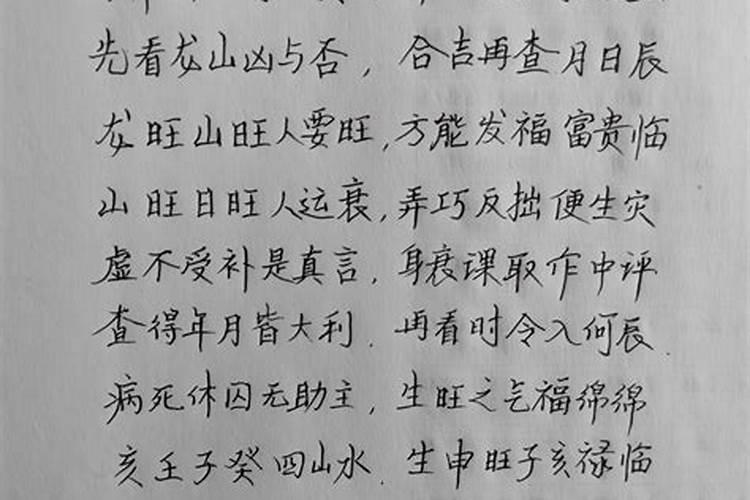 先看龙山凶与否，合吉再查月日辰
龙旺山旺人要旺，方能发福富贵临
山旺日旺人运衰，弄巧反拙便生灾
虚不受补是真言，身衰课取作中评
查得年月皆大利．再看时令入何辰．
病死休囚无助主，生旺之气福绵绵
亥壬子癸四山水．生申旺子亥禄临